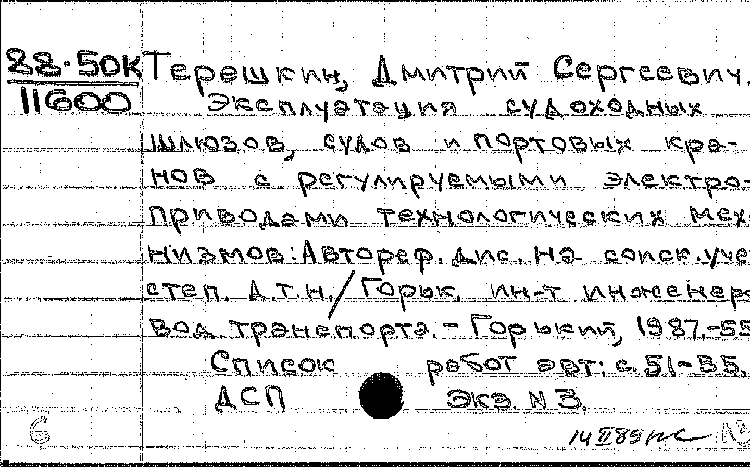 28.50К
11600
Терешкин, Дмитрий Сергеевич.
Эксплуатация судоходных
шлюзов, судов и портовых кра-
нов с регулируемыми электро-
приводами технологических меха
низмов: Автореф. дис. на соиск. уче
степ. д.т.н. / Горьк. ин-т инженер
вод. транспорта. - Горький, 1987. - 55
Список работ авт: с. 51-55.
ДСП Экз. N 3.
6
14 II 89